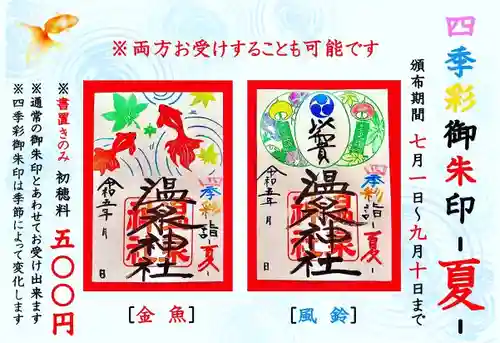 四季彩御朱印-夏-
頒布期間 七月一日〜九月十日まで
※両方お受けすることも可能です
四季彩詣
-夏-
温泉神社
令和五年 月 日
[風鈴]
四季彩詣
-夏-
温泉神社
令和五年 月 日
[金魚]
※書置きのみ 初穂料 五〇〇円
※通常の御朱印とあわせてお受け出来ます
※四季彩御朱印は季節によって変化します